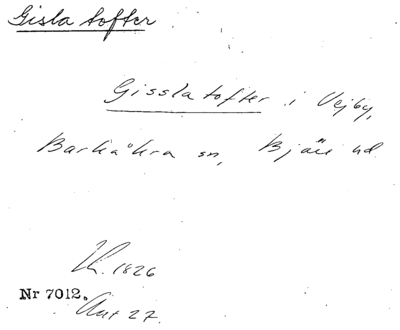 Gisla tofter
Gissla tofter i Vejby,
Barkåkra sn, Bjäre hd
1826
Nr 7012.
27